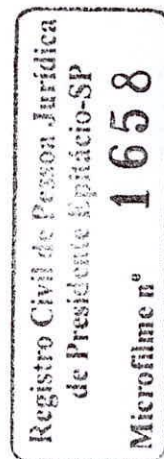 Registro Civil de Pessoa Jurídica
de Presidente Epitácio-SP
Microfilme nº 1658